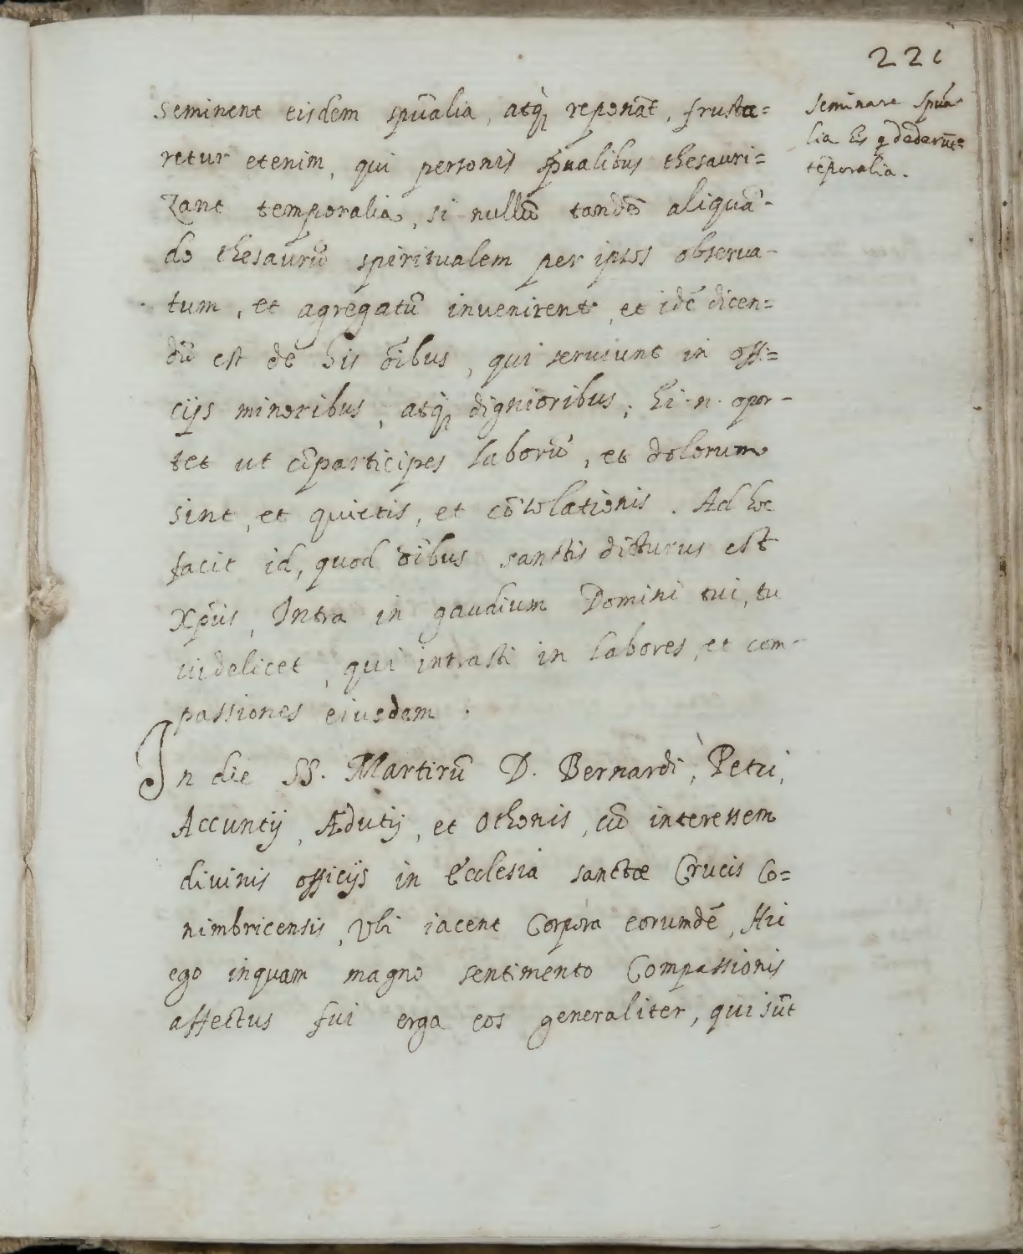 221
seminent eisdem spũalia, atq̃ reponãt, frusta=
retur etenim, qui personis spũalibus thesauri=
zant temporalia, si nullũ tandẽ aliquã-
do thesaurũ spiritualem per ipsos observa-
tum, et agregatũ invenirent, et idẽ dicen=
dũ est de his õibus, qui serviunt in offi=
cijs minoribus, atq̃ dignioribus, hi .n. opor-
tet ut cõparticipes laborũ, et dolorum
sint, et quietis, et cõsolationis. Ad hoc
facit id, quod õibus sanctis dicturus est
Xp̃us, Intra in gaudium Domini tui, tu
videlicet, qui intrasti in labores, et com-
passiones eiusdem.
In die SS. Martirũ D. Bernardi, Petri,
Accuntij, Ædutij, et Othonis, cũ interessem
divinis officijs in Ecclesia sanctæ Crucis Co=
nimbricensis, Vbi iacent Corpora eorumdẽ,
ego inquam magno sentimento Compassionis
affectus fui erga eos generaliter, qui sũt
seminare spũa-
lia his q dederũt
tẽporalia.